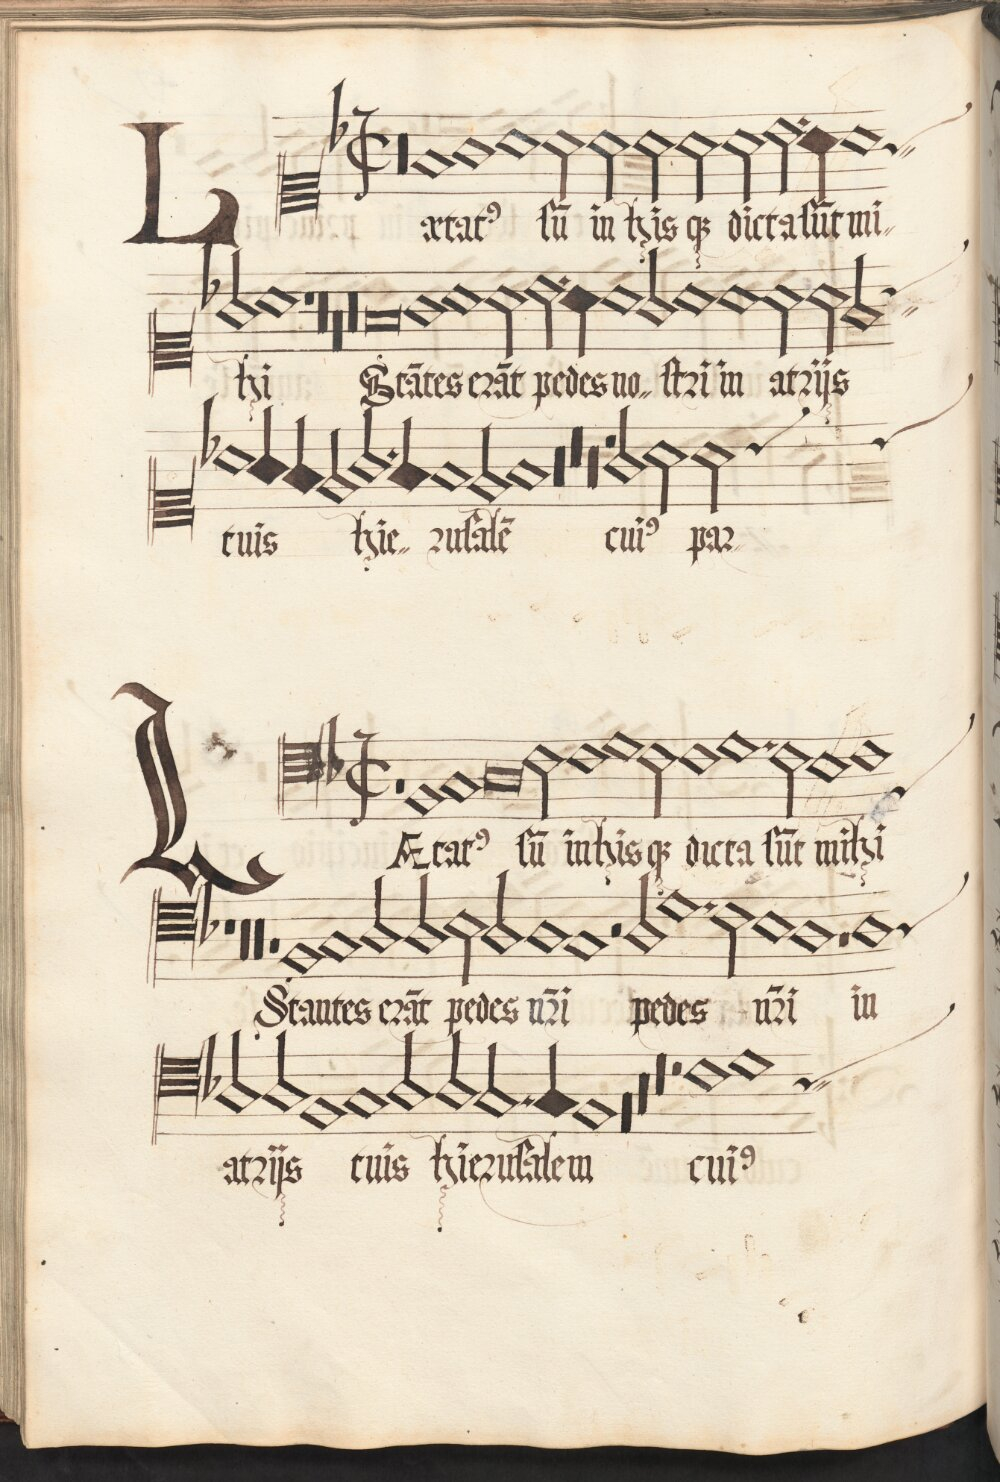 Lætatꝰ sū in his qꝫ dicta sūt mi„
hi Stātes erāt pedes no„ stri in atrijs
tuis hie„ rusalē cuiꝰ par„
LÆtatꝰ sū in his qꝫ dicta sūt mihi
Stantes erāt pedes nr̄i pedes nr̄i in
atrijs tuis hierusalem cuiꝰ